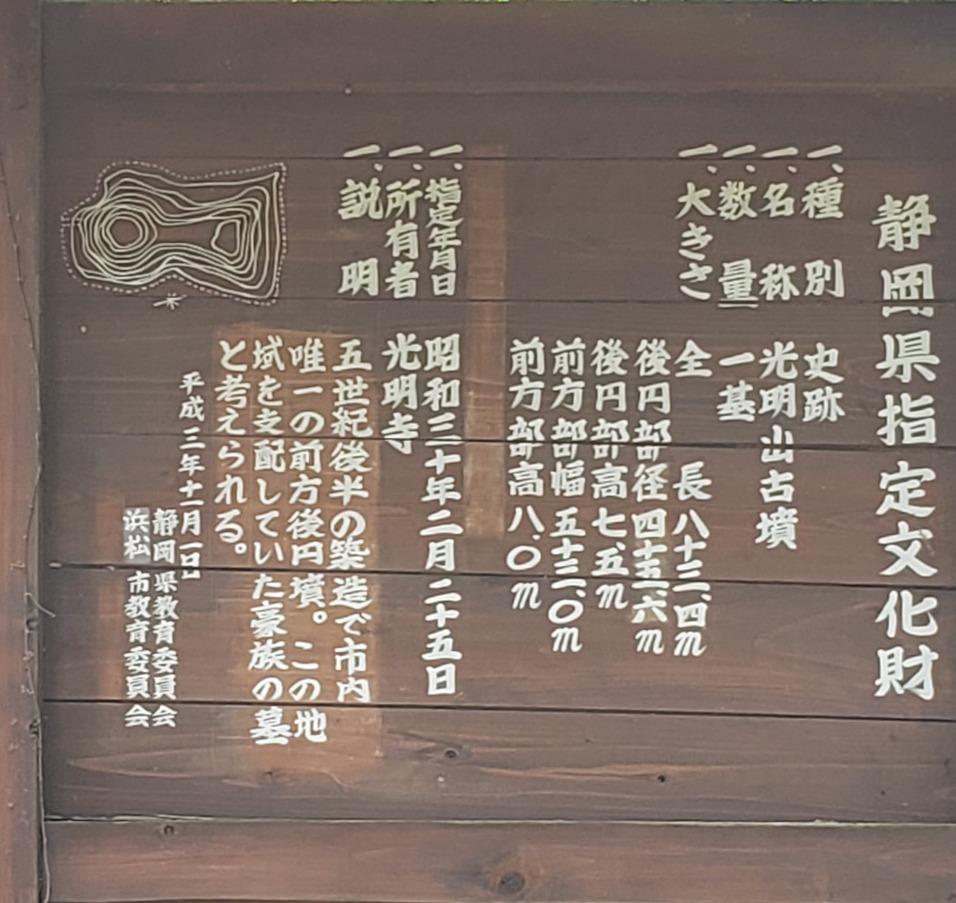 静岡県指定文化財
一、種別 史跡
一、名称 光明山古墳
一、数量 一基
一、大きさ 全長 八十三.四m
後円部径 四十五.六m
後円部高 七.五m
前方部幅 五十三.〇m
前方部高 八.〇m
一、指定年月日 昭和三十年二月二十五日
一、所有者 光明寺
一、説明 五世紀後半の築造で市内
唯一の前方後円墳。この地
域を支配していた豪族の墓
と考えられる。
平成三年十一月一日
静岡県教育委員会
浜松市教育委員会